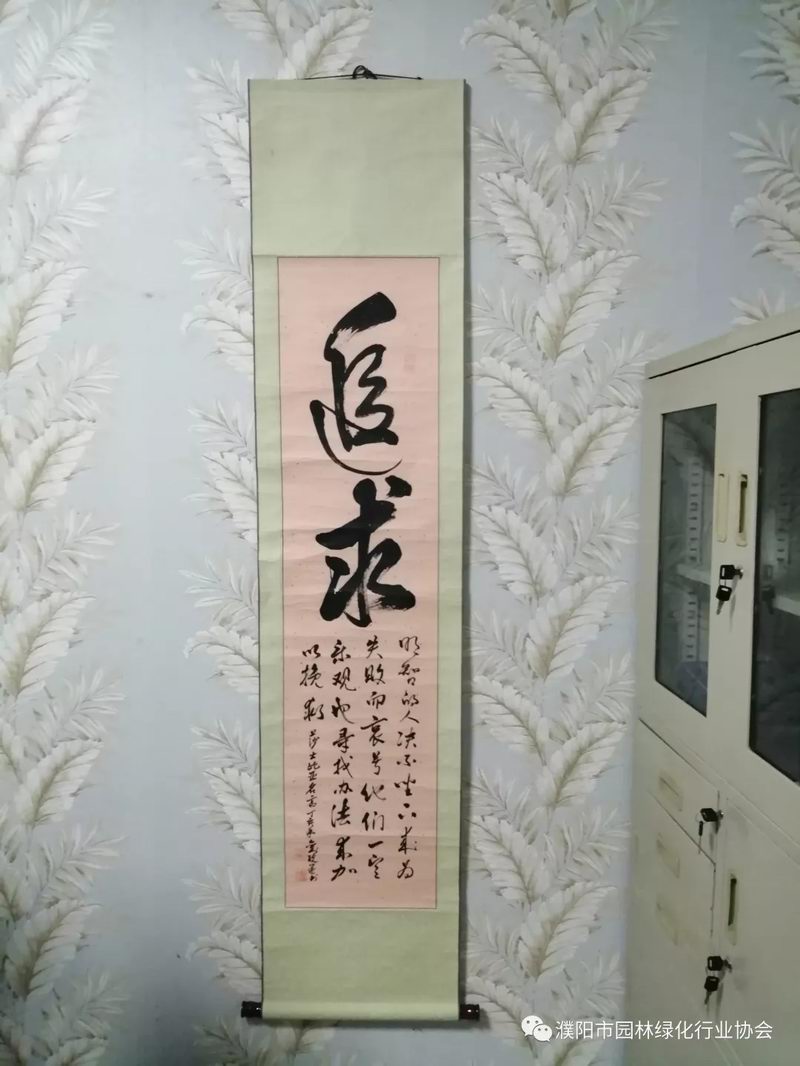 追求
明智的人决不坐下来为
失败而哀号他们一定
乐观地寻找办法来加
以挽救
莎士比亚名言丁亥年
濮阳市园林绿化行业协会